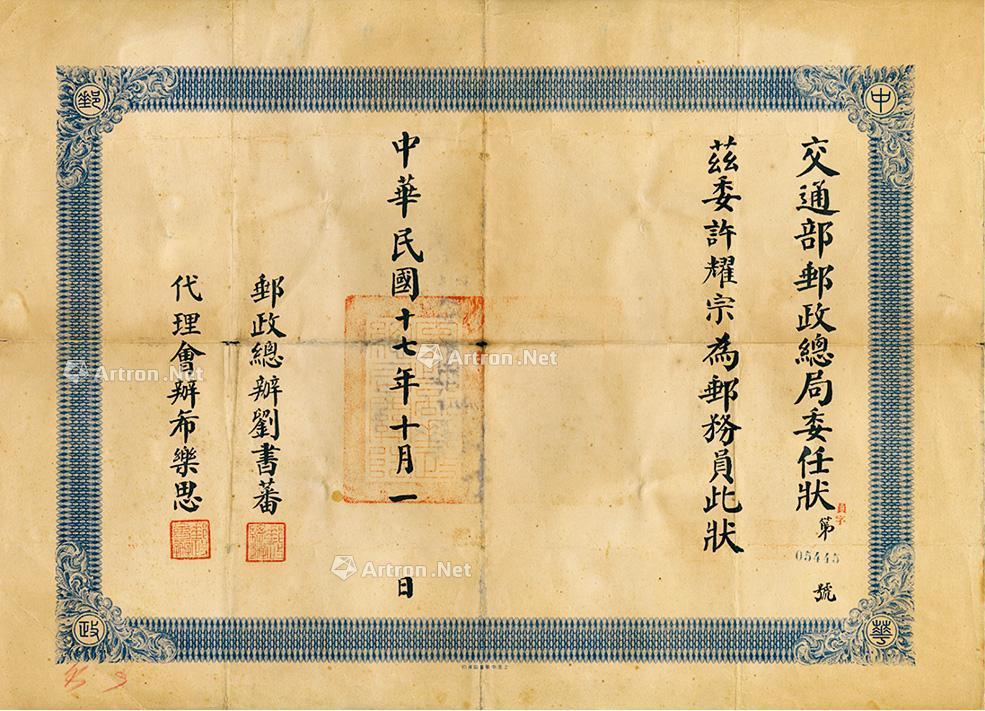 中
華
郵
政
交通部郵政總局委任狀
員字
第05445號
茲委許耀宗為郵務員此狀
中華民國十七年十月一日
郵政總辦劉書蕃
代理會辦布樂思
Artron.Net
Artron.Net
Artron.Net
Artron.Net